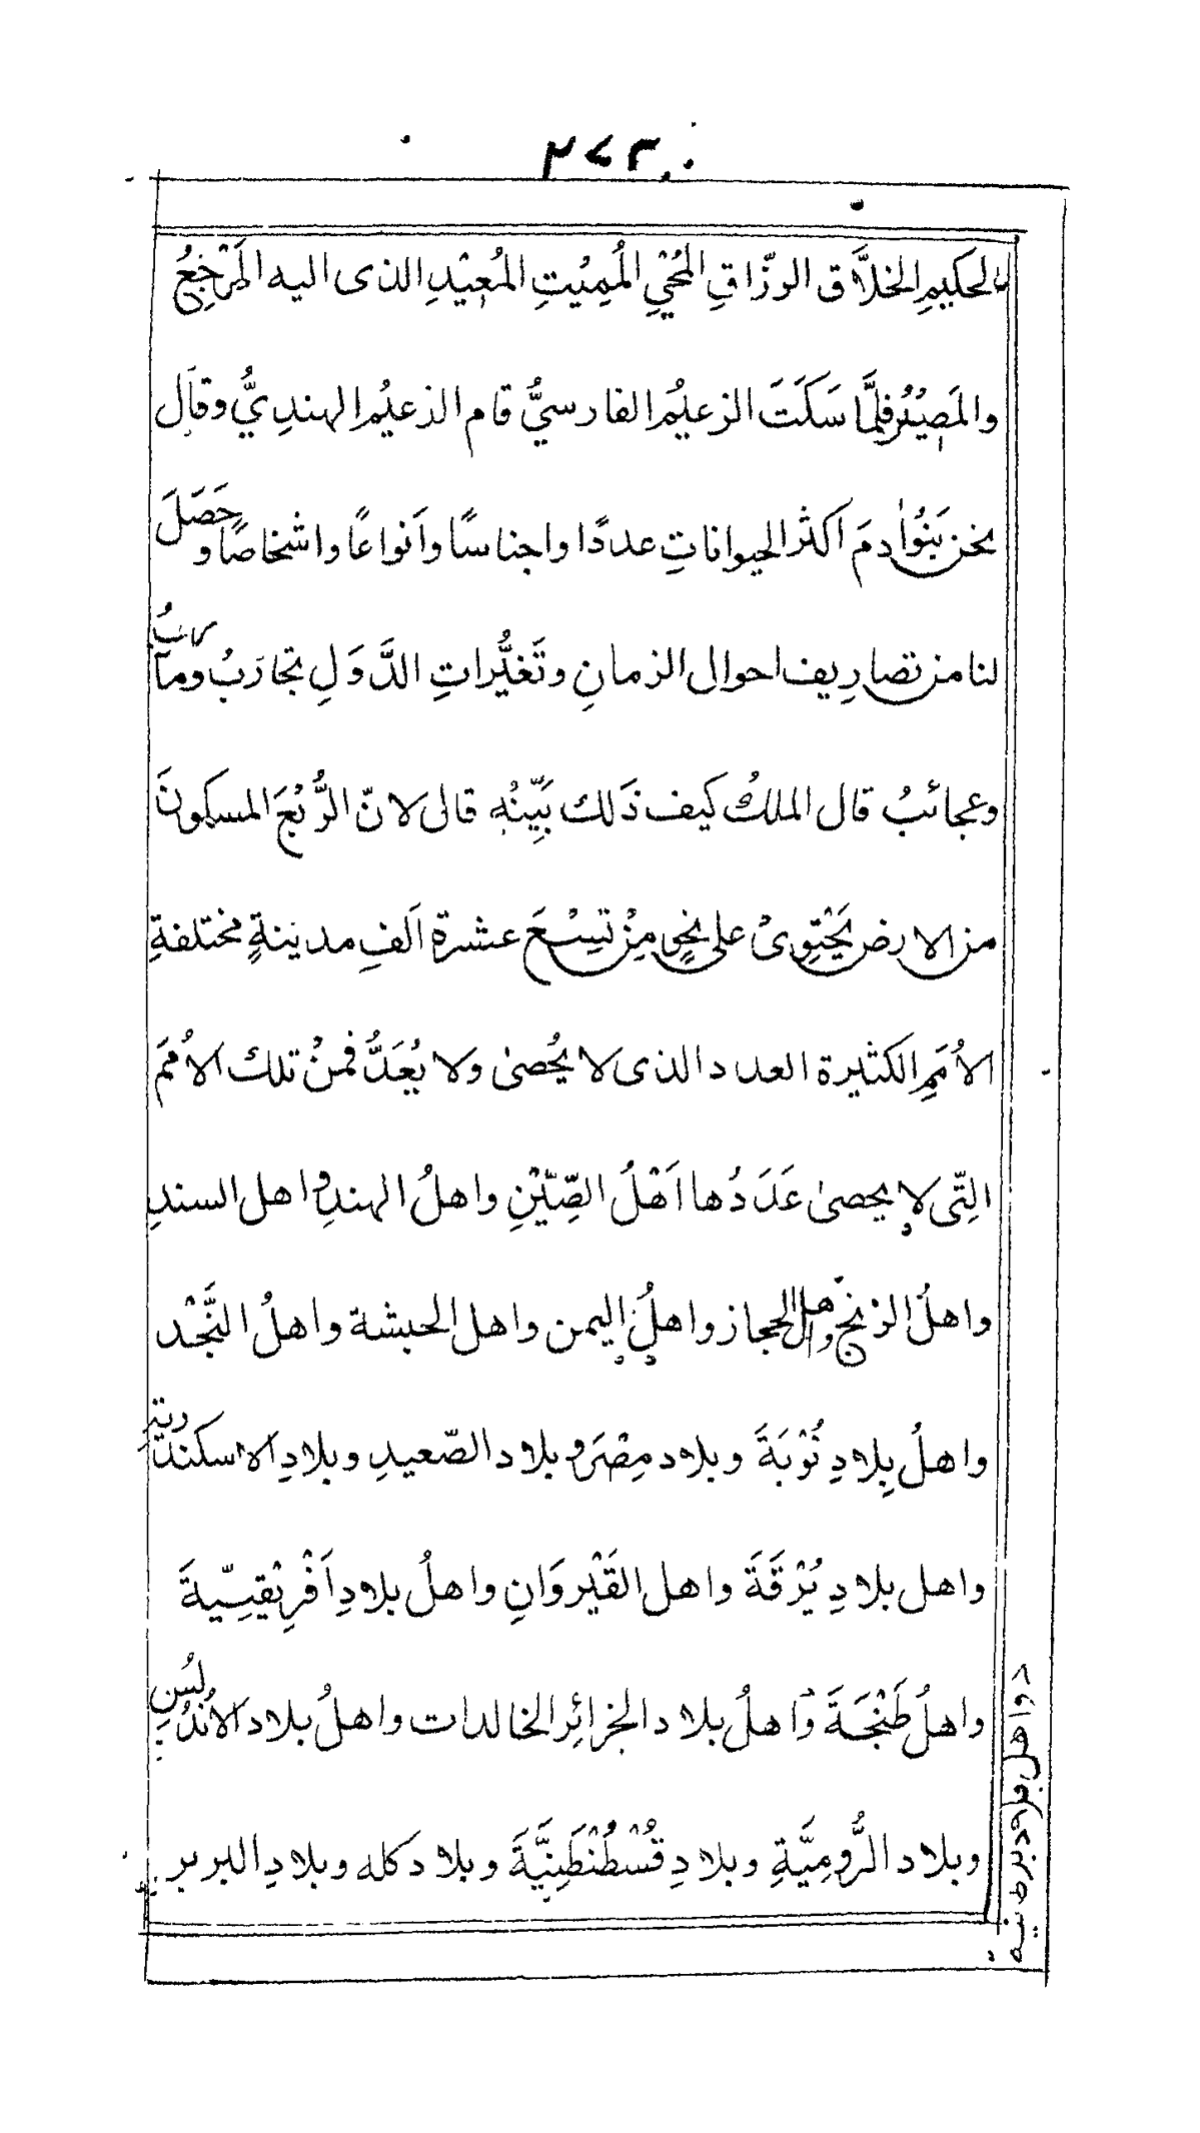 ٢٧٣
الحكيمِ الخلَّاق الرزّاقِ المُحْيِ المُمِيْتِ المُعِيْدِ الذى اليه المَرْجِعُ
والمَصِيْرُ فلمَّا سَكَتَ الزعيمُ الفارسيُّ قام الزعيمُ الهندِيُّ وقال
نحن بَنُوْاٰدمَ اَكثر الحيواناتِ عددًا واجناسًا واَنواعًا واشخاصًا وحَصَلَ
لنا من تصارِيف احوال الزمانِ وتَغَيُّراتِ الدَّوَلِ تجارَبُ ومآربُ
وعجائبُ قال الملكُ كيف ذَلك بَيِّنْهُ قال لانّ الرُّبْعَ المسكونَ
من الارض يَحْتِوِىْ على نحوٍ مِنْ تِسْعَ عشرة اَلفِ مدينةٍ مختلفةِ
الاُمَمِ الكثيرة العدد الذى لا يُحصىٰ ولا يُعَدُّ فمِنْ تلك الاُممَ
التِّى لا يحصىٰ عَدَدُها اَهْلُ الصِّيْنِ واهلُ الهندِ واهل السندِ
واهلُ الزنج واهل الحجاز واهلُ اليمن واهل الحبشة واهلُ النَّجْد
واهلُ بِلادِ نُوْبَةَ وبلاد مِصْرَ وبلاد الصّعيدِ وبلادِ الاسكندريّةِ
واهل بلادِ بُرْقَةَ واهل القَيْروَانِ واهلُ بلادِ اَفْرِيْقِيّةَ
واهلُ طَنْجَةَ وَاهلُ بلاد الجزائِر الخالدات واهلُ بلاد الاُندُلُسِ
وبلاد الرُّومِيَّةِ وبلادِ قُسْطُنْطَنِيَّةَ وبلاد كله وبلادِ البربر
واهل بلاد برطنية